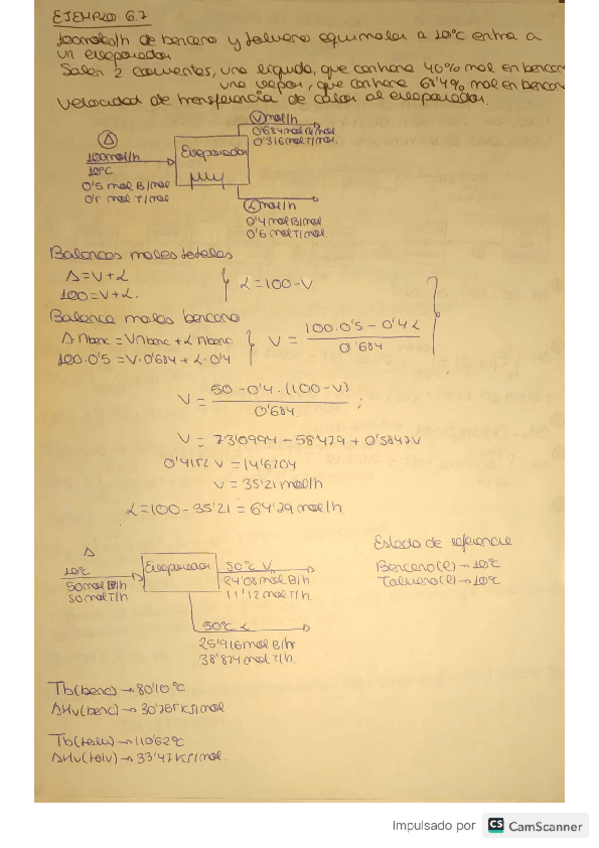 EJEMPLO 6.7
100mol/h de benceno y tolueno equimolar a 10°C entra a
un evaporador
Salen 2 corrientes, una líquida, que contiene 40% mol en benceno
una vapor, que contiene 68'4% mol en benceno
Velocidad de transferencia de calor al evaporador.
V mol/h
0'684 mol B/mol
0'316 mol T/mol
A
100mol/h
10°C
0'5 mol B/mol
0'5 mol T/mol
Evaporador
L mol/h
0'4 mol B/mol
0'6 mol T/mol
Balances moles totales
A = V + L
100 = V + L.
L = 100 - V
Balance moles benceno
A nbenc = V nbenc + L nbenc
100·0'5 = V·0'684 + L·0'4
V = 100·0'5 - 0'4L / 0'684
V = 50 - 0'4·(100-V) / 0'684 ;
V = 73'0994 - 58'479 + 0'5847V
0'4152 V = 14'6204
V = 35'21 mol/h
L = 100 - 35'21 = 64'79 mol/h
A
10°C
50 mol B/h
50 mol T/h
Evaporador
50°C V
24'08 mol B/h
11'12 mol T/h
50°C L
25'916 mol B/h
38'874 mol T/h
Estado de referencia
Benceno(l) → 10°C
Tolueno(l) → 10°C
Tb(benc) → 80'10°C
ΔHv(benc) → 30'765 KJ/mol
Tb(tolu) → 110'62°C
ΔHv(tolu) → 33'47 KJ/mol.
Impulsado por CS CamScanner